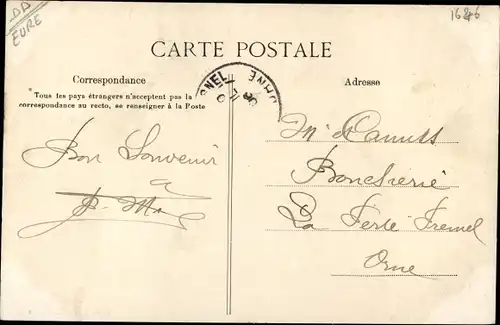 DD
EURE
1646
CARTE POSTALE
Correspondance
Adresse
* Tous les pays étrangers n'acceptent pas la
correspondance au recto, se renseigner à la Poste
Bon Souvenir
Boucherie
La Ferté Fresnel
Orne